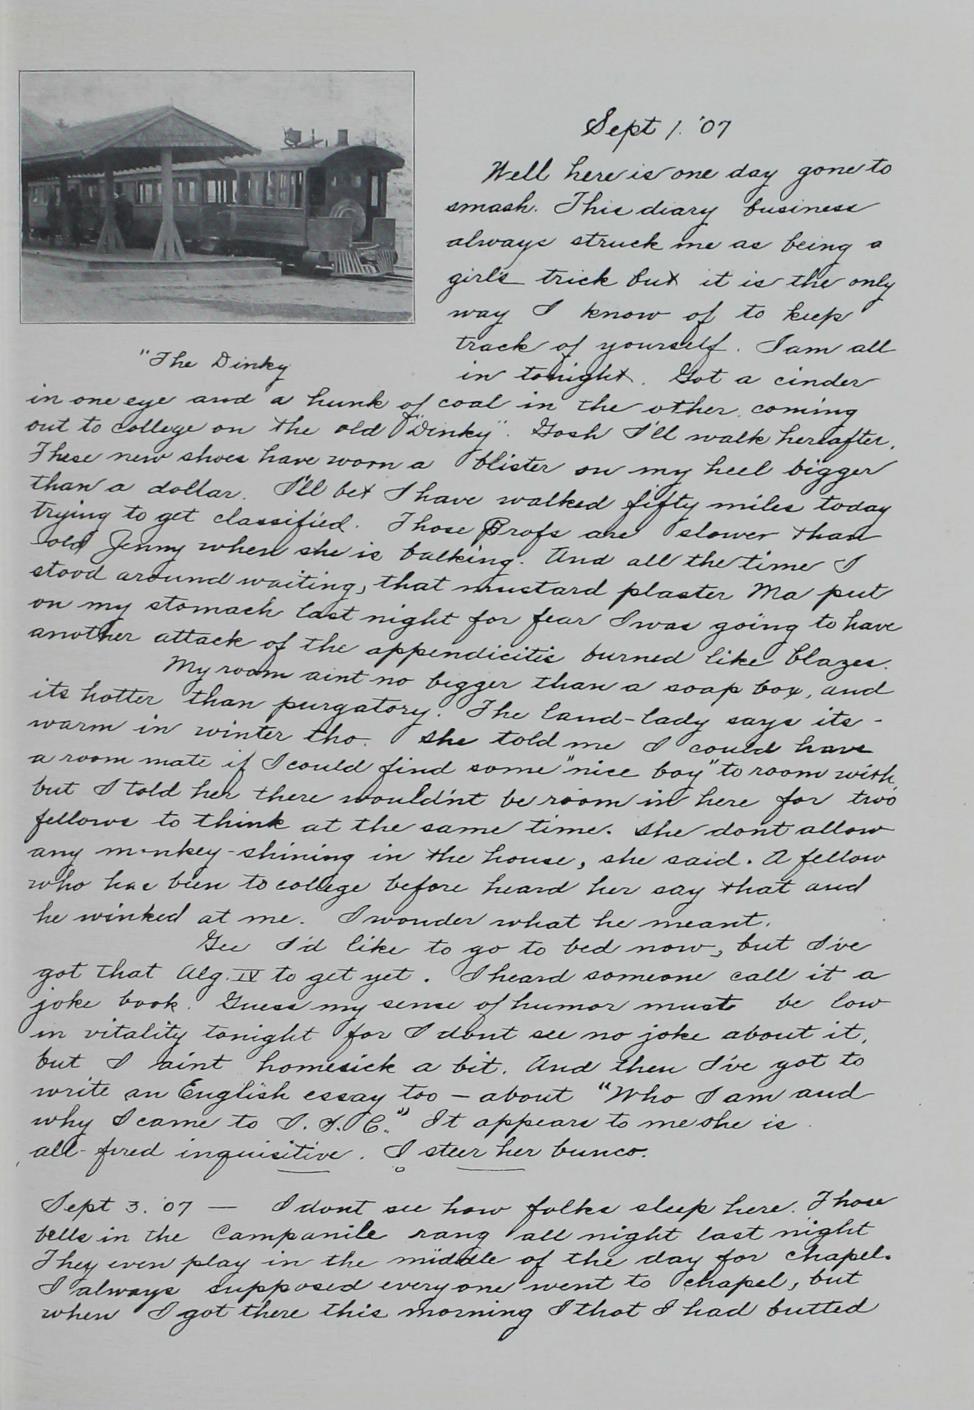 Sept 1. '07
Well here is one day gone to
smash. This diary business
always struck me as being a
girls trick but it is the only
way I know of to keep
track of yourself. I am all
"The Dinky
in tonight. Got a cinder
in one eye and a hunk of coal in the other coming
out to college on the old "Dinky". Gosh I'll walk hereafter.
These new shoes have worn a blister on my heel bigger
than a dollar. I'll bet I have walked fifty miles today
trying to get classified. Those Profs are slower than
old Jenny when she is balking. And all the time I
stood around waiting, that mustard plaster Ma put
on my stomach last night for fear I was going to have
another attack of the appendicitis burned like blazes.
My room aint no bigger than a soap box, and
its hotter than purgatory. The land-lady says its -
warm in winter tho. She told me I could have
a room mate if I could find some "nice boy" to room with,
but I told her there wouldn't be room in here for two
fellows to think at the same time. She dont allow
any monkey-shining in the house, she said. A fellow
who has been to college before heard her say that and
he winked at me. I wonder what he meant.
Gee I'd like to go to bed now, but I've
got that Alg. IV to get yet. I heard someone call it a
joke book. Guess my sense of humor must be low
in vitality tonight for I dont see no joke about it,
but I aint homesick a bit. And then I've got to
write an English essay too - about "Who I am and
why I came to I. S. C." It appears to me she is
all-fired inquisitive. I steer her bunco.
Sept 3. '07 — I dont see how folks sleep here. Those
bells in the Campanile rang all night last night
They even play in the middle of the day for chapel.
I always supposed everyone went to chapel, but
when I got there this morning I thot I had butted